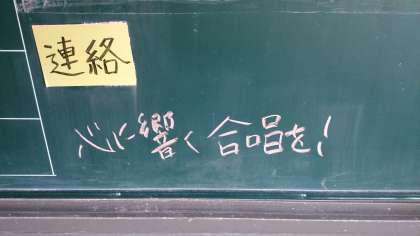 連絡
心に響く合唱を!